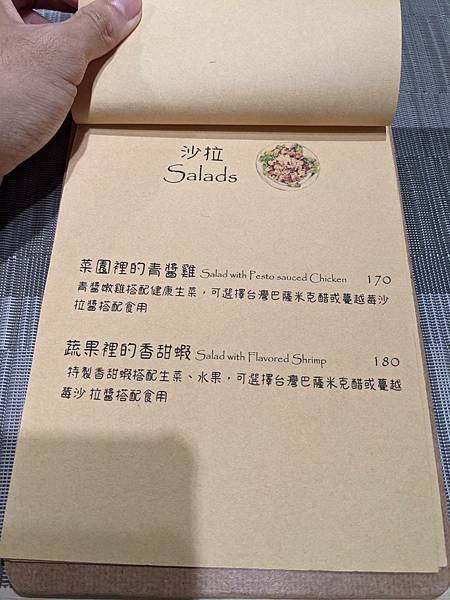 沙拉
Salads
菜園裡的青醬雞 Salad with Pesto sauced Chicken 170
青醬嫩雞搭配健康生菜，可選擇台灣巴薩米克醋或蔓越莓沙
拉醬搭配食用
蔬果裡的香甜蝦 Salad with Flavored Shrimp 180
特製香甜蝦搭配生菜、水果，可選擇台灣巴薩米克醋或蔓越
莓沙拉醬搭配食用